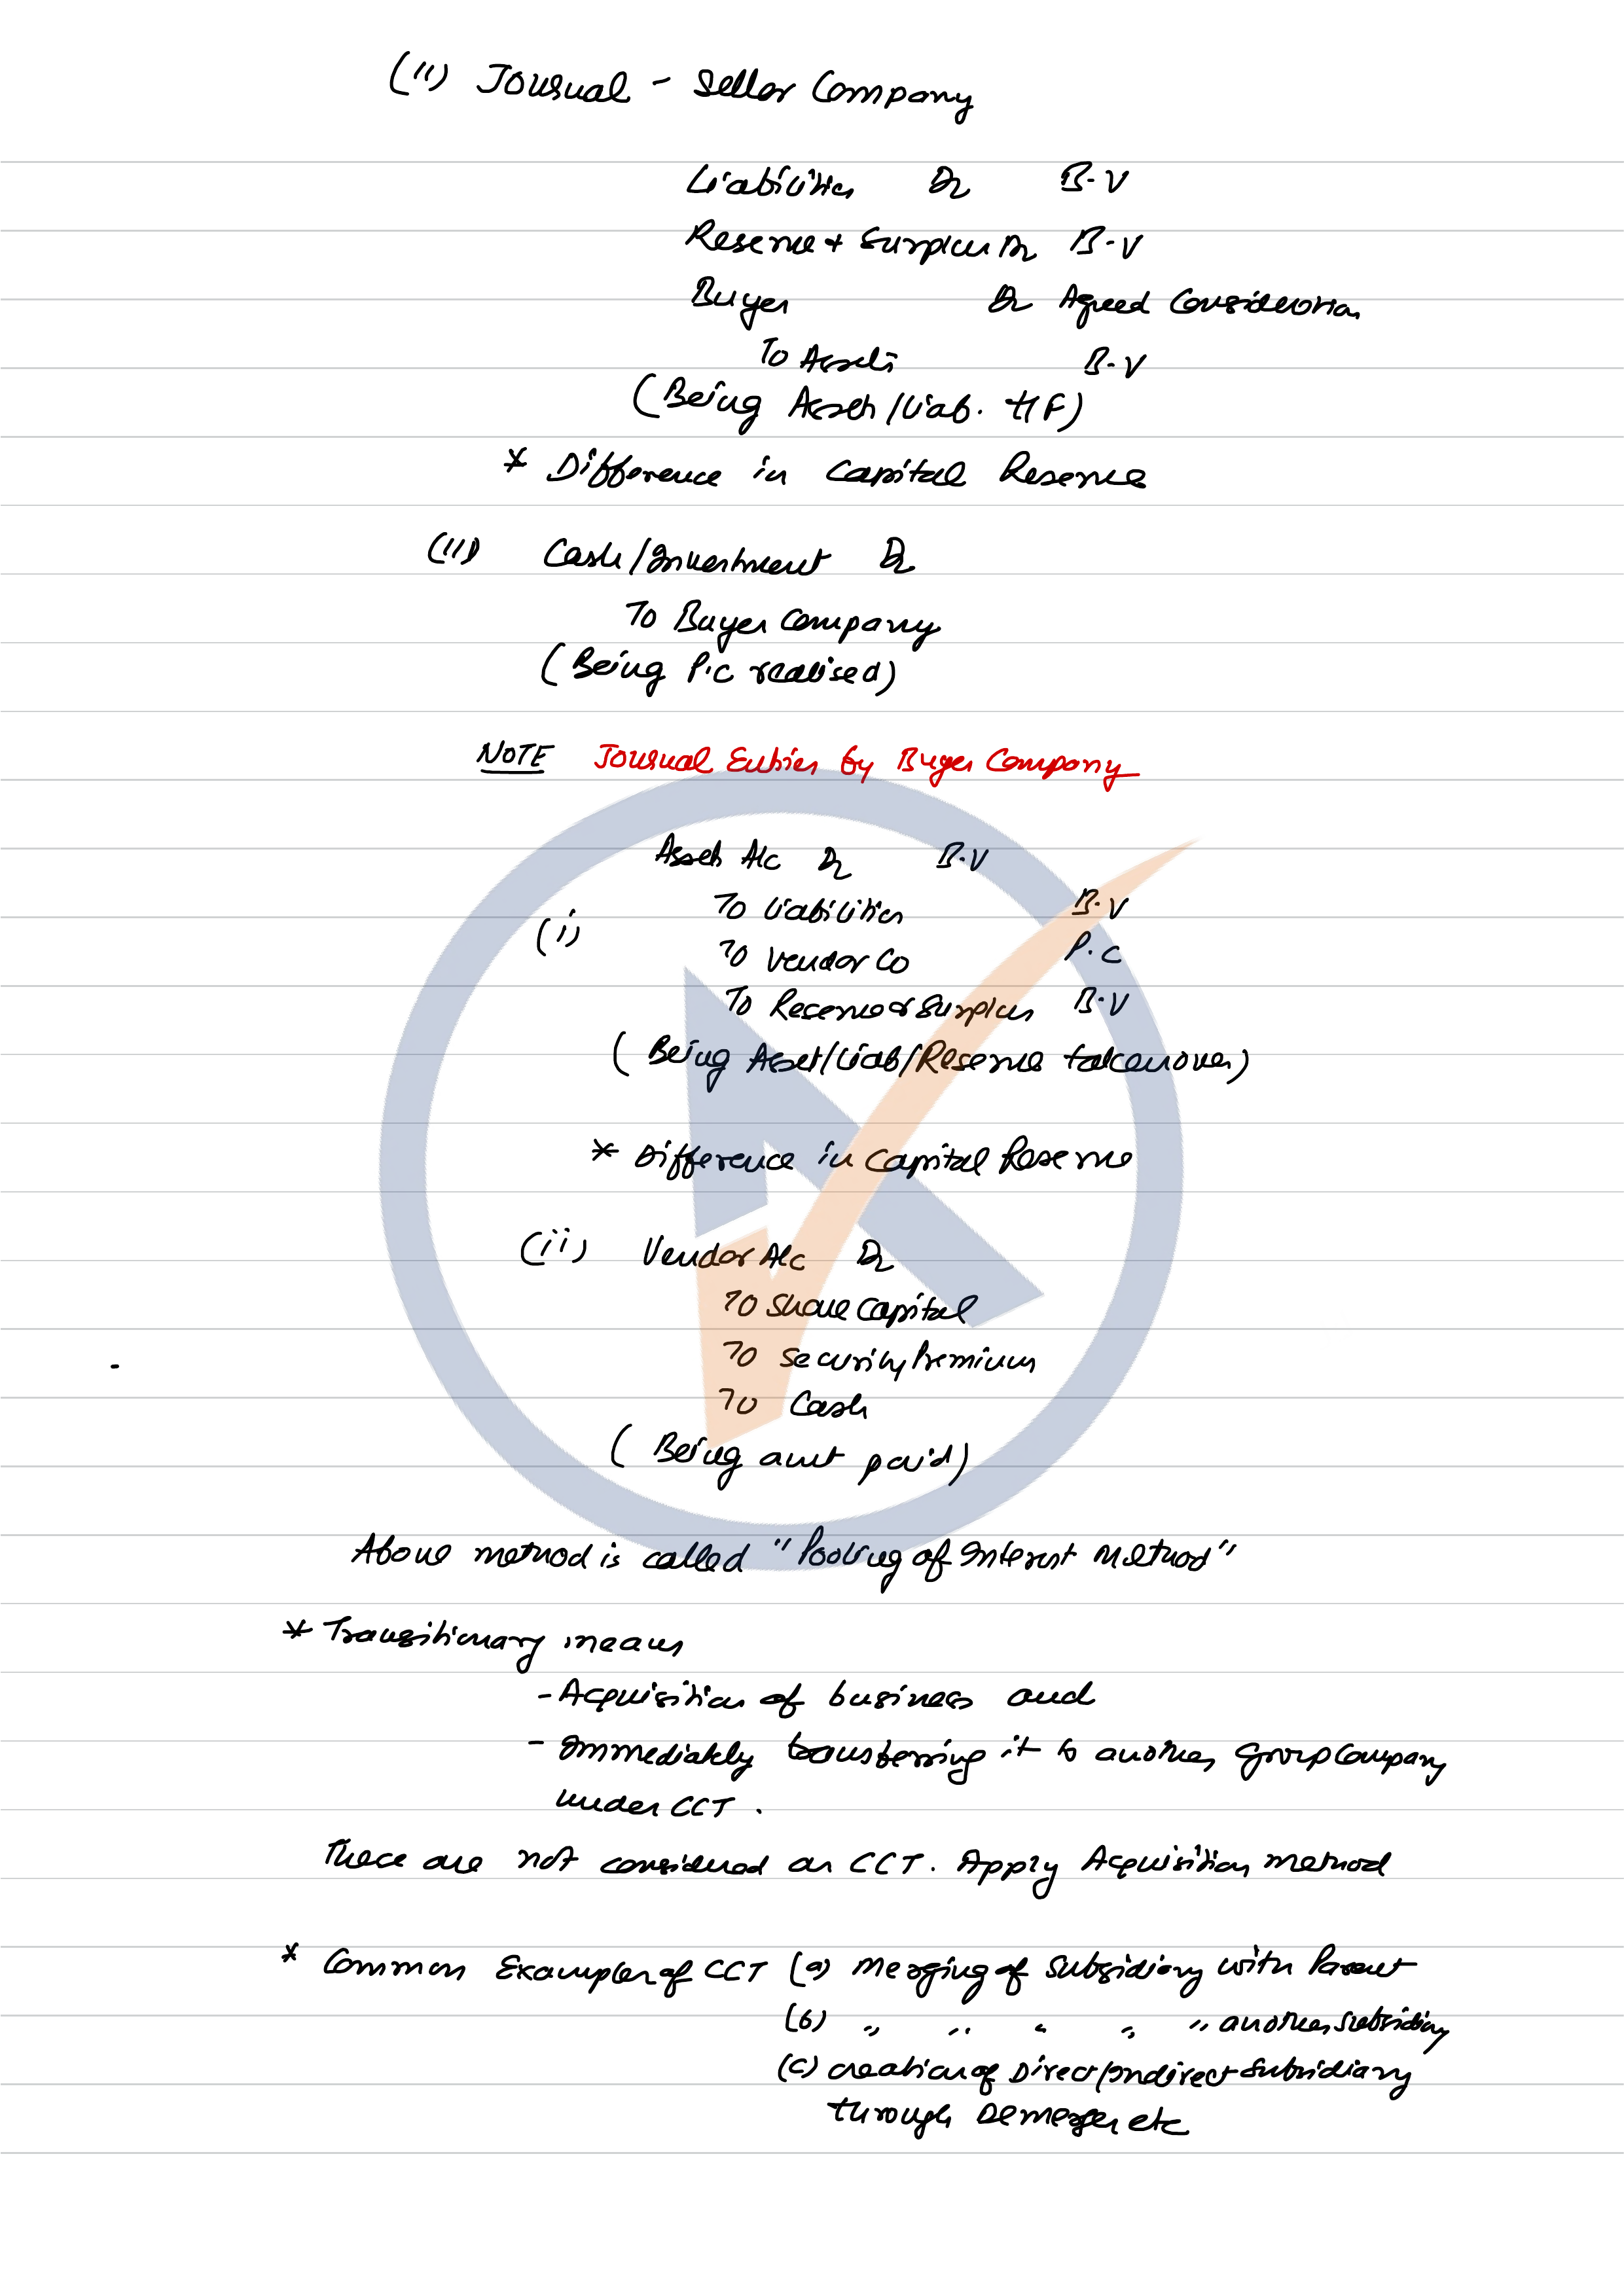 (II) Journal - Seller Company
Liabilities Dr B.V
Reserve & Surplus Dr B.V
Buyer Dr Agreed Consideration
To Assets B.V
(Being Assets/Liab. t/f)
* Difference in Capital Reserve
(III) Cash/Investment Dr
To Buyer Company
(Being P.C realised)
NOTE Journal Entries by Buyer Company
Assets A/c Dr B.V
To Liabilities B.V
(i)
To Vendor Co P.C
To Reserve & Surplus B.V
(Being Asset/Liab/Reserve takenover)
* Difference in Capital Reserve
(ii) Vendor A/c Dr
To Share Capital
To Security Premium
To Cash
(Being amt paid)
Above method is called "Pooling of Interest Method"
* Transitionary means
- Acquisition of business and
- Immediately transferring it to another group company
under CCT.
These are not considered as CCT. Apply Acquisition method
* Common Examples of CCT (a) Merging of Subsidiary with Parent
(b) " " " " " another subsidiary
(c) creation of Direct/Indirect subsidiary
through Demerger etc